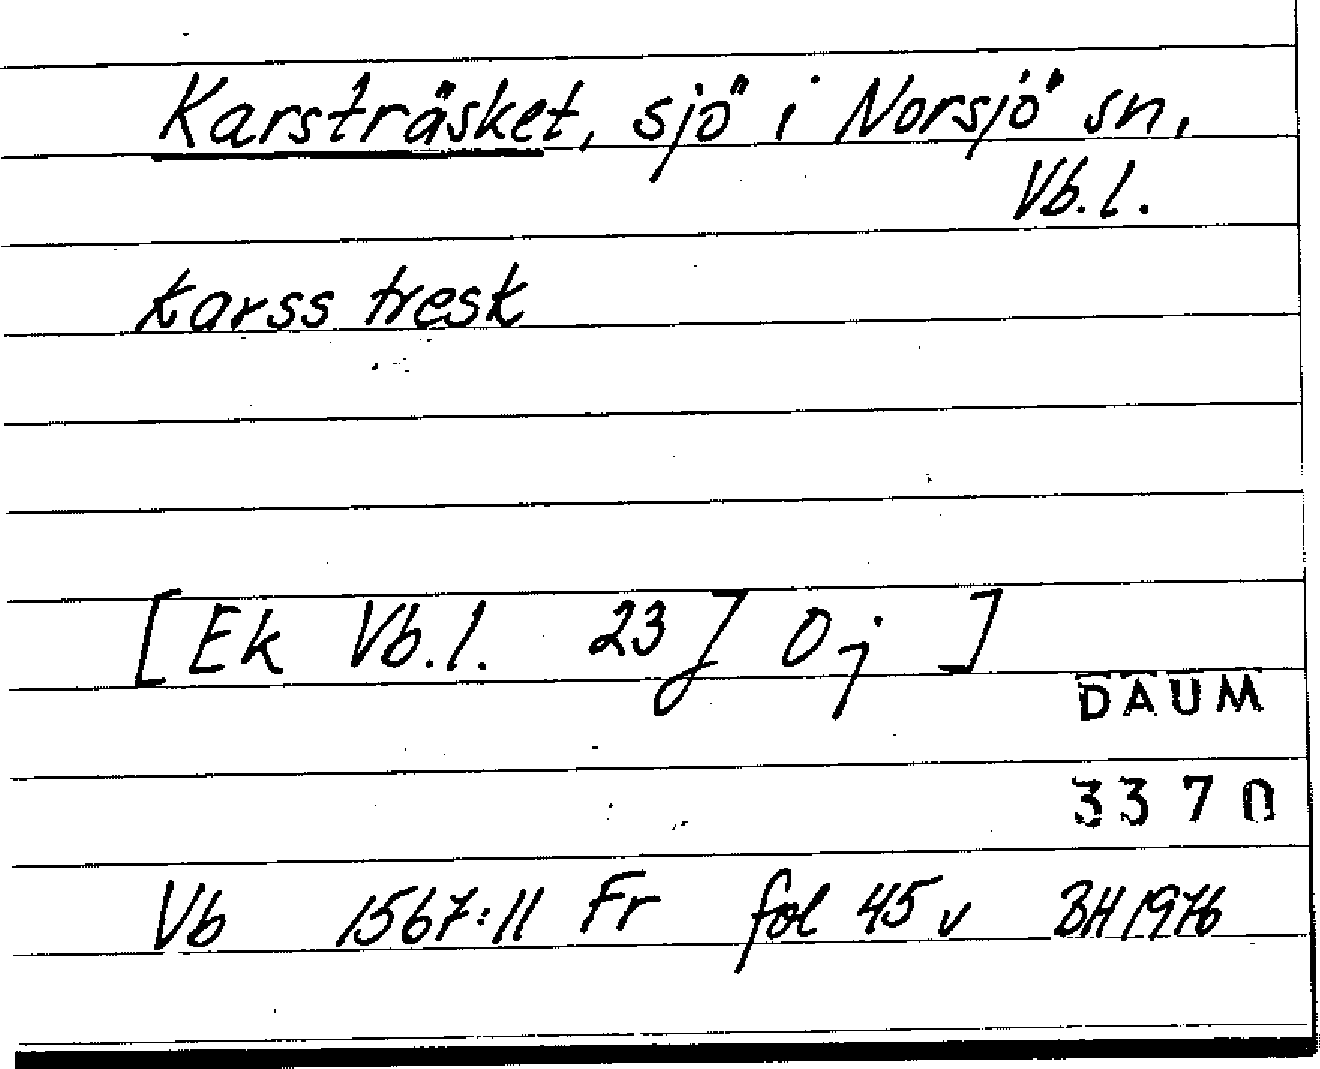 Karsträsket, sjö i Norsjö sn,
Vb.l.
karss tresk
[Ek Vb.l. 23 J 0j ]
DAUM
3370
Vb 1567:11 Fr fol 45 v BH 1976